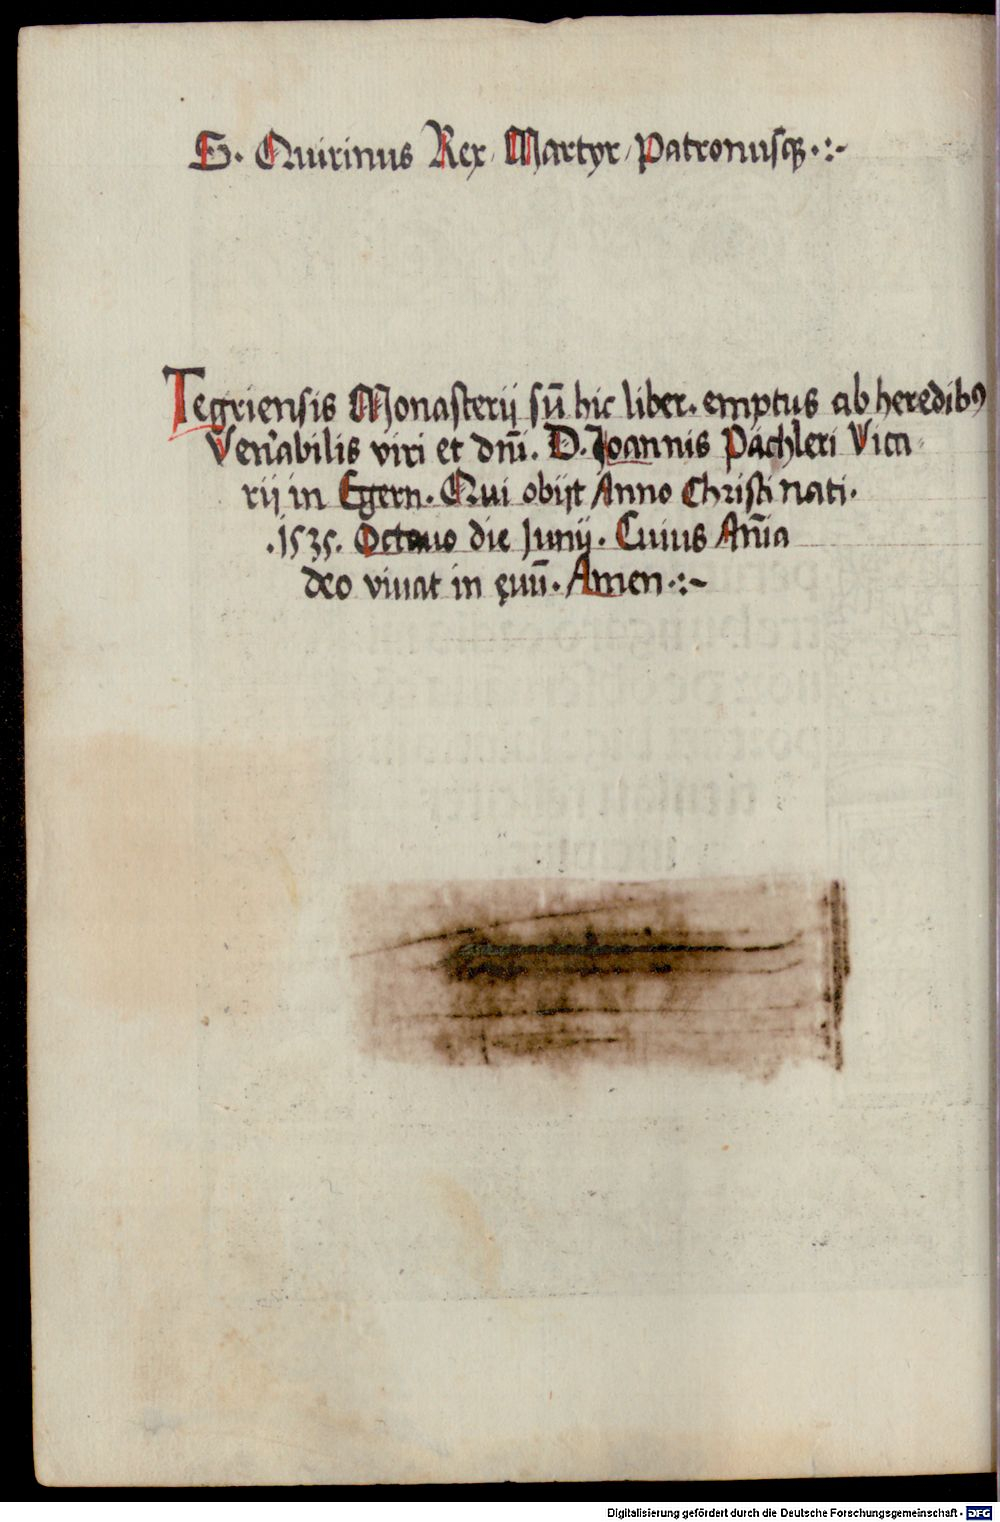 S. Quirinus Rex, Martyr, Patronusq̃ .:-
Tegriensis Monasterij sũ hic liber. emptus ab heredibꝰ
Veñabilis viri et dñi. D. Joannis Pächleri Vica
rij in Egern. Qui obijt Anno Christi nati.
.1535. Octauo die Junij. Cuius Añia
deo viuat in ęuũ. Amen .:~
Digitalisierung gefördert durch die Deutsche Forschungsgemeinschaft - DFG